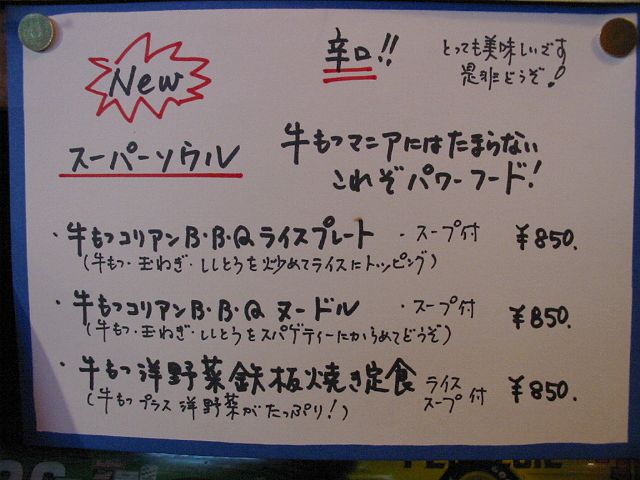 New
辛口!!
とっても美味しいです
是非どうぞ!
スーパーソウル
牛もつマニアにはたまらない
これぞパワーフード!
・牛もつコリアンB・B・Qライスプレート ・スープ付 ¥850.
(牛もつ・玉ねぎ・ししとうを炒めてライスにトッピング)
・牛もつコリアンB・B・Q ヌードル ・スープ付 ¥850.
(牛もつ・玉ねぎ・ししとうをスパゲティーにからめてどうぞ)
・牛もつ洋野菜鉄板焼き定食 ライス スープ付 ¥850.
(牛もつプラス洋野菜がたっぷり!)